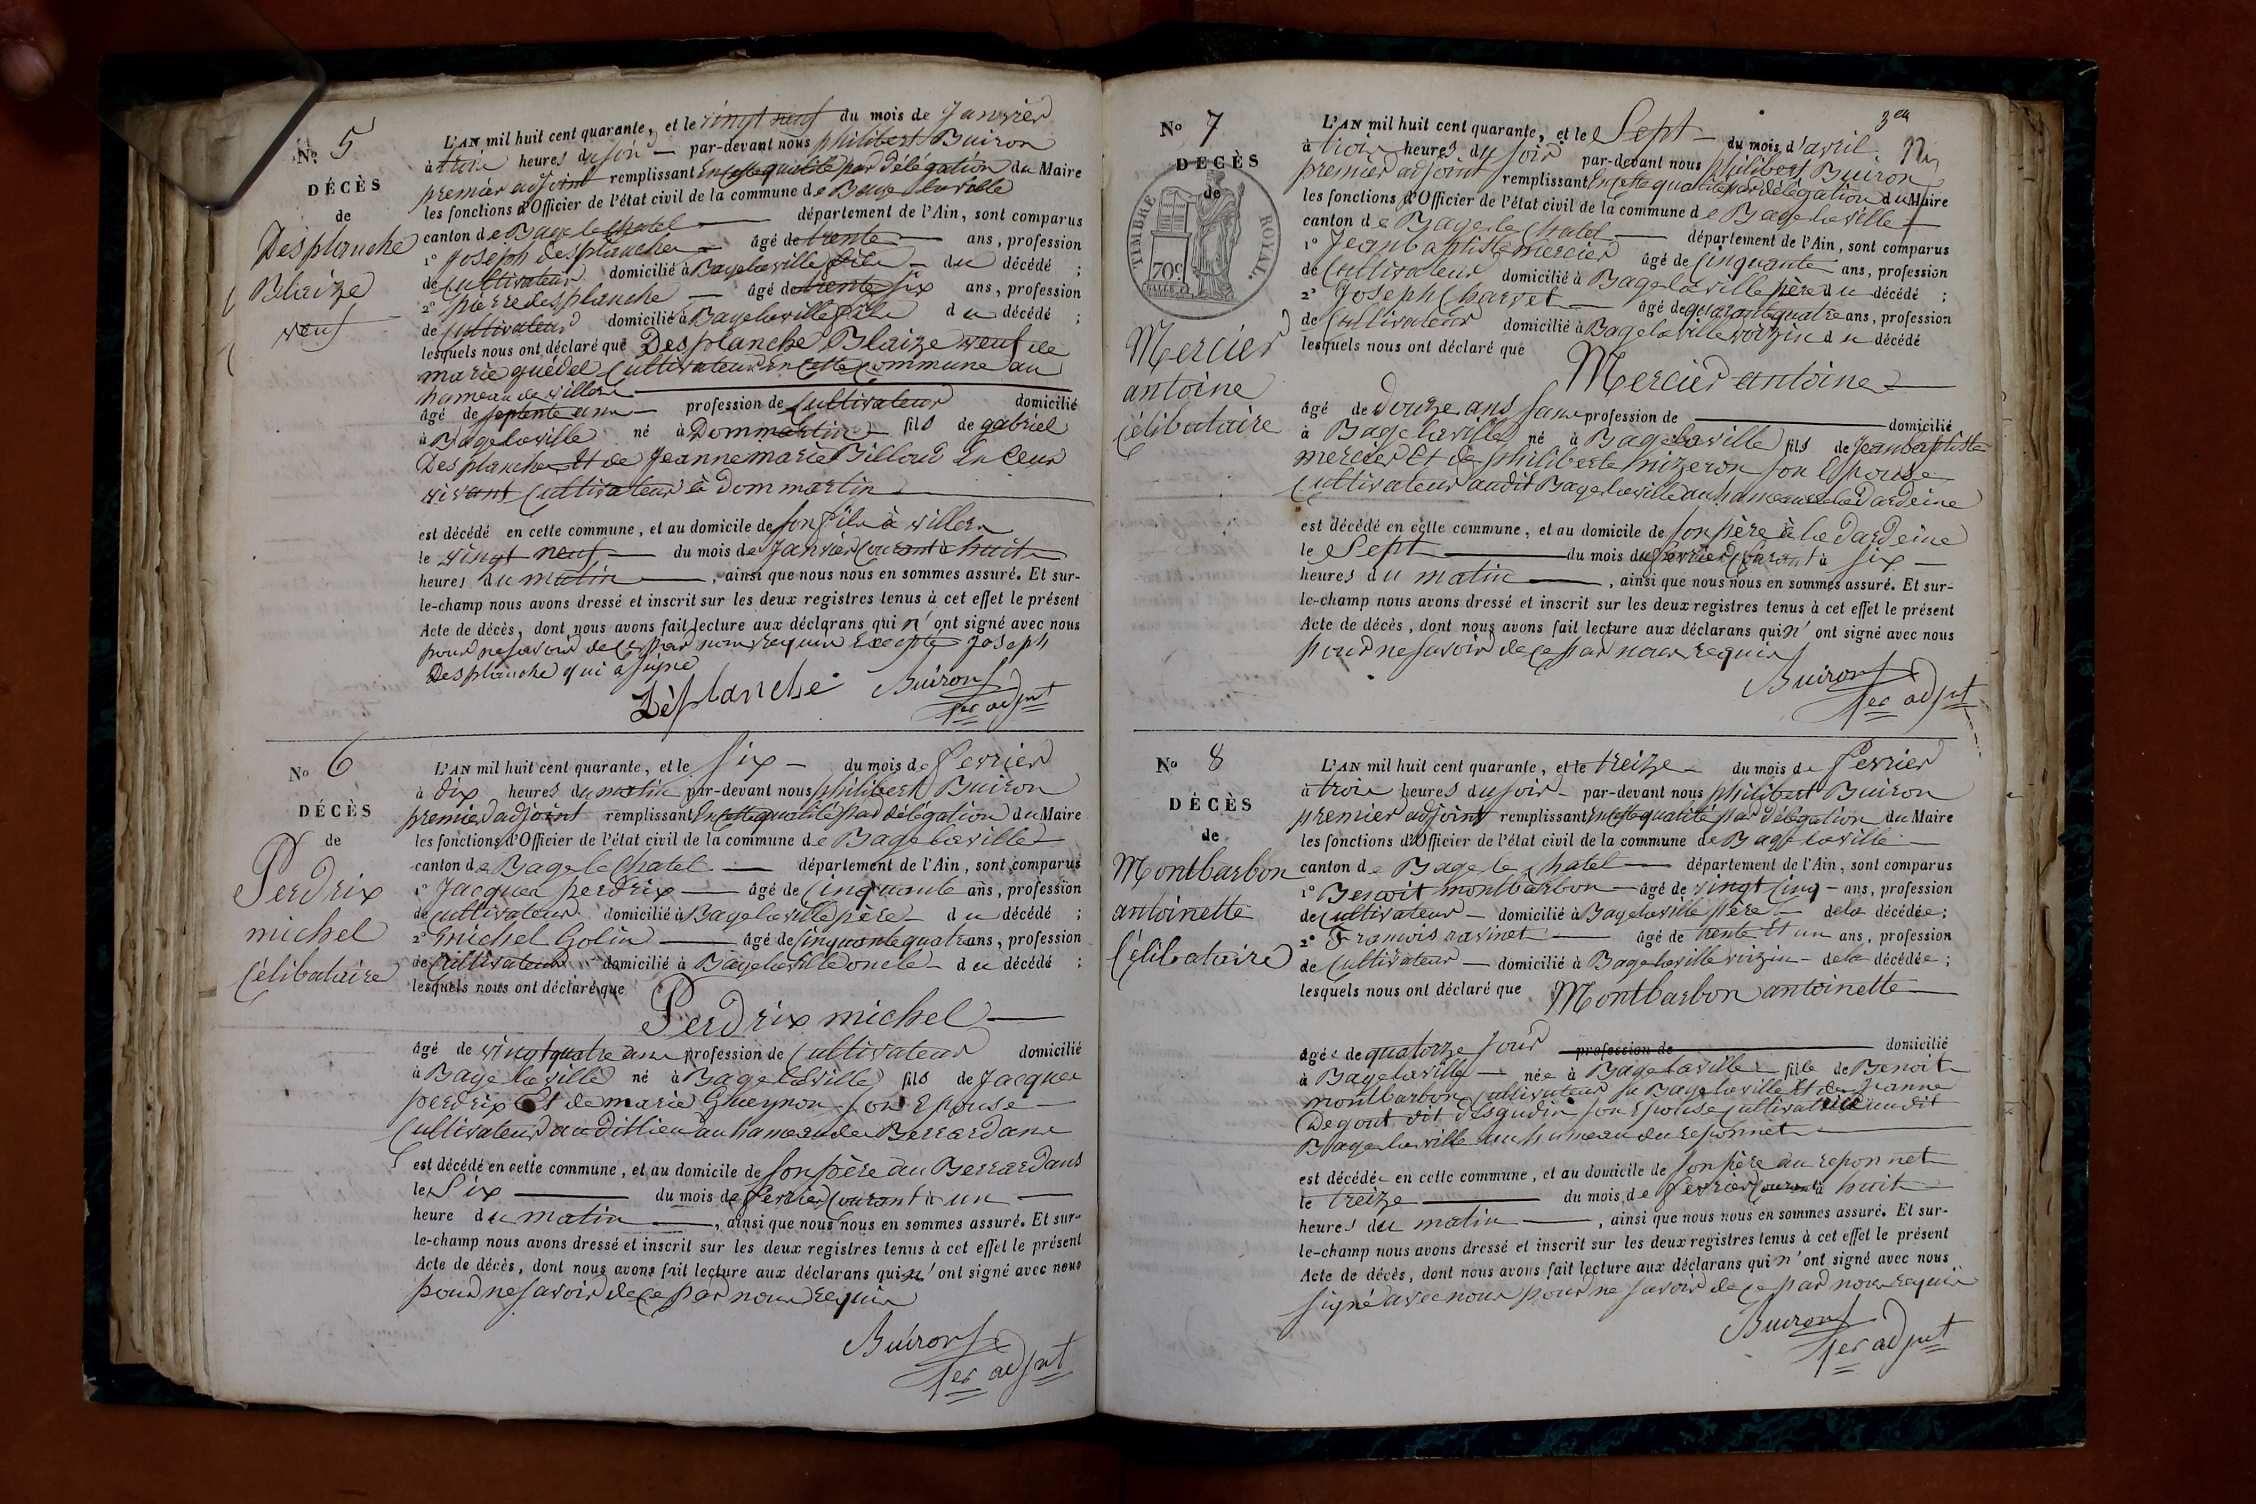 N.º 5
DÉCÈS
de
Desplanche
Blaize
veuf
L'AN mil huit cent quarante, et le vingt neuf du mois de Janvier
à trois heures du soir par-devant nous philibert Buiron
premier adjoint remplissant En cette qualité par délégation du Maire
les fonctions d'Officier de l'état civil de la commune de Bage la ville
canton de Bage le Chatel département de l'Ain, sont comparus
1º Joseph desplanche âgé de trente ans, profession
de Cultivateur domicilié à Bage la ville fils du décédé ;
2º pierre desplanche âgé de trente six ans, profession
de Cultivateur domicilié à Bage la ville fils du décédé ;
lesquels nous ont déclaré que Desplanche Blaize veuf de
marie guédel Cultivateur En Cette Commune au
hameau de villers
âgé de septente ans profession de Cultivateur domicilié
à Bage la ville né à Dommartin fils de gabriel
Desplanche Et de Jeanne marie Billoud En leur
vivant Cultivateur à dommartin
est décédé en cette commune, et au domicile de son fils à villers
le vingt neuf du mois de Janvier Courant à huit
heures du matin, ainsi que nous nous en sommes assuré. Et sur-
le-champ nous avons dressé et inscrit sur les deux registres tenus à cet effet le présent
Acte de décès, dont nous avons fait lecture aux déclarans qui n'ont signé avec nous
pour ne savoir de ce par nous requis Excepté Joseph
Desplanche qui a signé
Déplanche Buiron
1er adjnt
Nº 6
DÉCÈS
de
Perdrix
michel
Célibataire
L'AN mil huit cent quarante, et le six du mois de fevrier
à dix heures du matin par-devant nous philibert Buiron
premier adjoint remplissant En cette qualité par délégation du Maire
les fonctions d'Officier de l'état civil de la commune de Bage la ville
canton de Bage le Chatel département de l'Ain, sont comparus
1º Jacques perdrix âgé de Cinquante ans, profession
de Cultivateur domicilié à Bage la ville père du décédé ;
2º michel Golin âgé de Cinquante quatre ans, profession
de Cultivateur domicilié à Bage la ville oncle du décédé ;
lesquels nous ont déclaré que
Perdrix michel
âgé de vingt quatre ans profession de Cultivateur domicilié
à Bage la ville né à Bage la ville fils de Jacques
perdrix Et de marie Gueynon son Epouse
Cultivateur au dit lieu au hameau des Bernardans
est décédé en cette commune, et au domicile de son père au Bernardans
le Six du mois de fevrier Courant à un
heure du matin, ainsi que nous nous en sommes assuré. Et sur-
le-champ nous avons dressé et inscrit sur les deux registres tenus à cet effet le présent
Acte de décès, dont nous avons fait lecture aux déclarans qui n'ont signé avec nous
pour ne savoir de ce par nous requis
Buiron
1er adjnt
3eu
Nº 7
DÉCÈS
de
TIMBRE ROYAL
70c
Mercier
antoine
Célibataire
L'AN mil huit cent quarante, et le Sept du mois d'avril
à trois heures du soir par-devant nous philibert Buiron
premier adjoint remplissant En cette qualité par délégation du Maire
les fonctions d'Officier de l'état civil de la commune de Bage la ville
canton de Bage le Chatel département de l'Ain, sont comparus
1º Jean baptiste mercier âgé de Cinquante ans, profession
de Cultivateur domicilié à Bage la ville père du décédé ;
2º Joseph Charvet âgé de quarante quatre ans, profession
de Cultivateur domicilié à Bage la ville voizin du décédé
lesquels nous ont déclaré que
Mercier antoine
âgé de douze ans sans profession de domicilié
à Bage la ville né à Bage la ville fils de Jean baptiste
mercier Et de philiberte nizeron son Epouse
Cultivateur audit Bage la ville au hameau de la Dardeine
est décédé en cette commune, et au domicile de son père à la Dardeine
le Sept du mois de fevrier Courant à six
heures du matin, ainsi que nous nous en sommes assuré. Et sur-
le-champ nous avons dressé et inscrit sur les deux registres tenus à cet effet le présent
Acte de décès, dont nous avons fait lecture aux déclarans qui n'ont signé avec nous
pour ne savoir de ce par nous requis
Buiron
1er adjnt
Nº 8
DÉCÈS
de
Montbarbon
antoinette
Célibataire
L'AN mil huit cent quarante, et le treize du mois de fevrier
à trois heures du soir par-devant nous philibert Buiron
premier adjoint remplissant En cette qualité par délégation du Maire
les fonctions d'Officier de l'état civil de la commune de Bage la ville
canton de Bage le Chatel département de l'Ain, sont comparus
1º Benoit montbarbon âgé de vingt Cinq ans, profession
de Cultivateur domicilié à Bage la ville père de la décédée ;
2º Francois ravinet âgé de trente Et un ans, profession
de Cultivateur domicilié à Bage la ville voizin de la décédée ;
lesquels nous ont déclaré que Montbarbon antoinette
âgée de quatorze jour profession de domicilié
à Bage la ville née à Bage la ville fille de Benoit
montbarbon Cultivateur a Bage la ville Et de Jeanne
Degout dit desgudin son Epouse Cultivatrice audit
Bage la ville au hameau du reponnet
est décédée en cette commune, et au domicile de son père au reponnet
le treize du mois de fevrier Courant à huit
heures du matin, ainsi que nous nous en sommes assuré. Et sur-
le-champ nous avons dressé et inscrit sur les deux registres tenus à cet effet le présent
Acte de décès, dont nous avons fait lecture aux déclarans qui n'ont signé avec nous
signé avec nous pour ne savoir de ce par nous requis
Buiron
1er adjnt